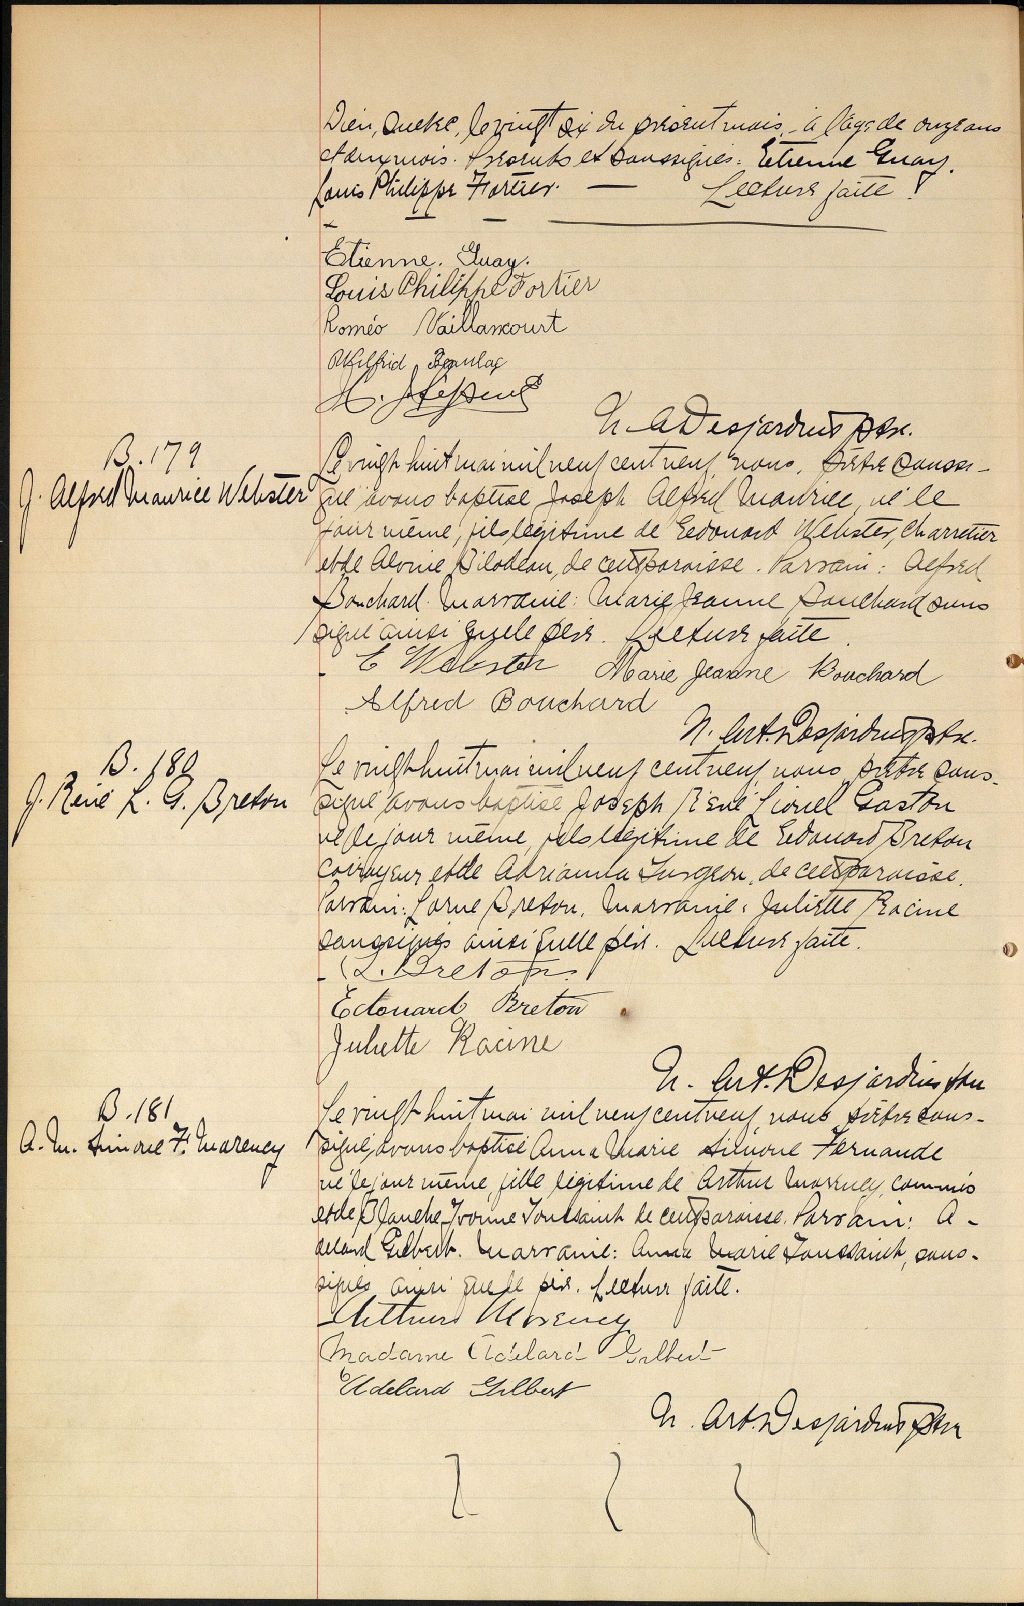 Dieu, Québec, le vingt six du présent mois, à l'âge de onze ans
et deux mois. Présents et soussignés: Etienne Guay,
Louis Philippe Fortier. — Lecture faite!
Etienne. Guay.
Louis Philippe Fortier
Roméo Vaillancourt
Wilfrid
N. A Desjardins ptre.
B. 179
J. Alfred Maurice Webster
Le vingt huit mai mil neuf cent neuf, nous, prêtre soussi-
gné avons baptisé Joseph Alfred Maurice, né le
jour même, fils légitime de Edouard Webster, charretier
et de Alvine Bilodeau, de cette paroisse. Parrain: Alfred
Bouchard. Marraine: Marie Jeanne Bouchard sous
signé ainsi que le père. Lecture faite.
E Webster Marie Jeanne Bouchard
Alfred Bouchard
N. Art. Desjardins ptre.
B. 180
J. René L. G. Breton
Le vingt huit mai mil neuf cent neuf, nous, prêtre sous-
signé avons baptisé Joseph René Lionel Gaston
né le jour même, fils légitime de Edouard Breton
corroyeur et de Adrianna Turgeon, de cette paroisse.
Parrain: Lorne Breton. Marraine: Juliette Racine
soussignés ainsi que le père. Lecture faite.
L. Breton
Edouard Breton
Juliette Racine
N. Art. Desjardins ptre
B. 181
A. M. Simone F. Marency
Le vingt huit mai mil neuf cent neuf, nous prêtre sous-
signé, avons baptisé Anna Marie Simone Fernande
née le jour même, fille légitime de Arthur Marency, commis
et de Blanche Yvonne Toussaint de cette paroisse. Parrain: A-
delard Gilbert. Marraine: Anna Marie Toussaint, sous-
signés ainsi que le père. Lecture faite.
Arthur Morency
Madame Adelard Gilbert
Adelard Gilbert
N. Art. Desjardins ptre